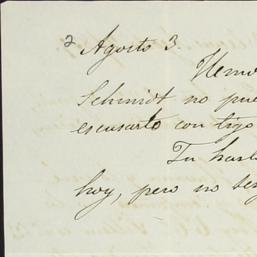 2 Agosto 3.
Hemo
Schmidt no pue
escusarte con tigo
Tu
hoy, pero no